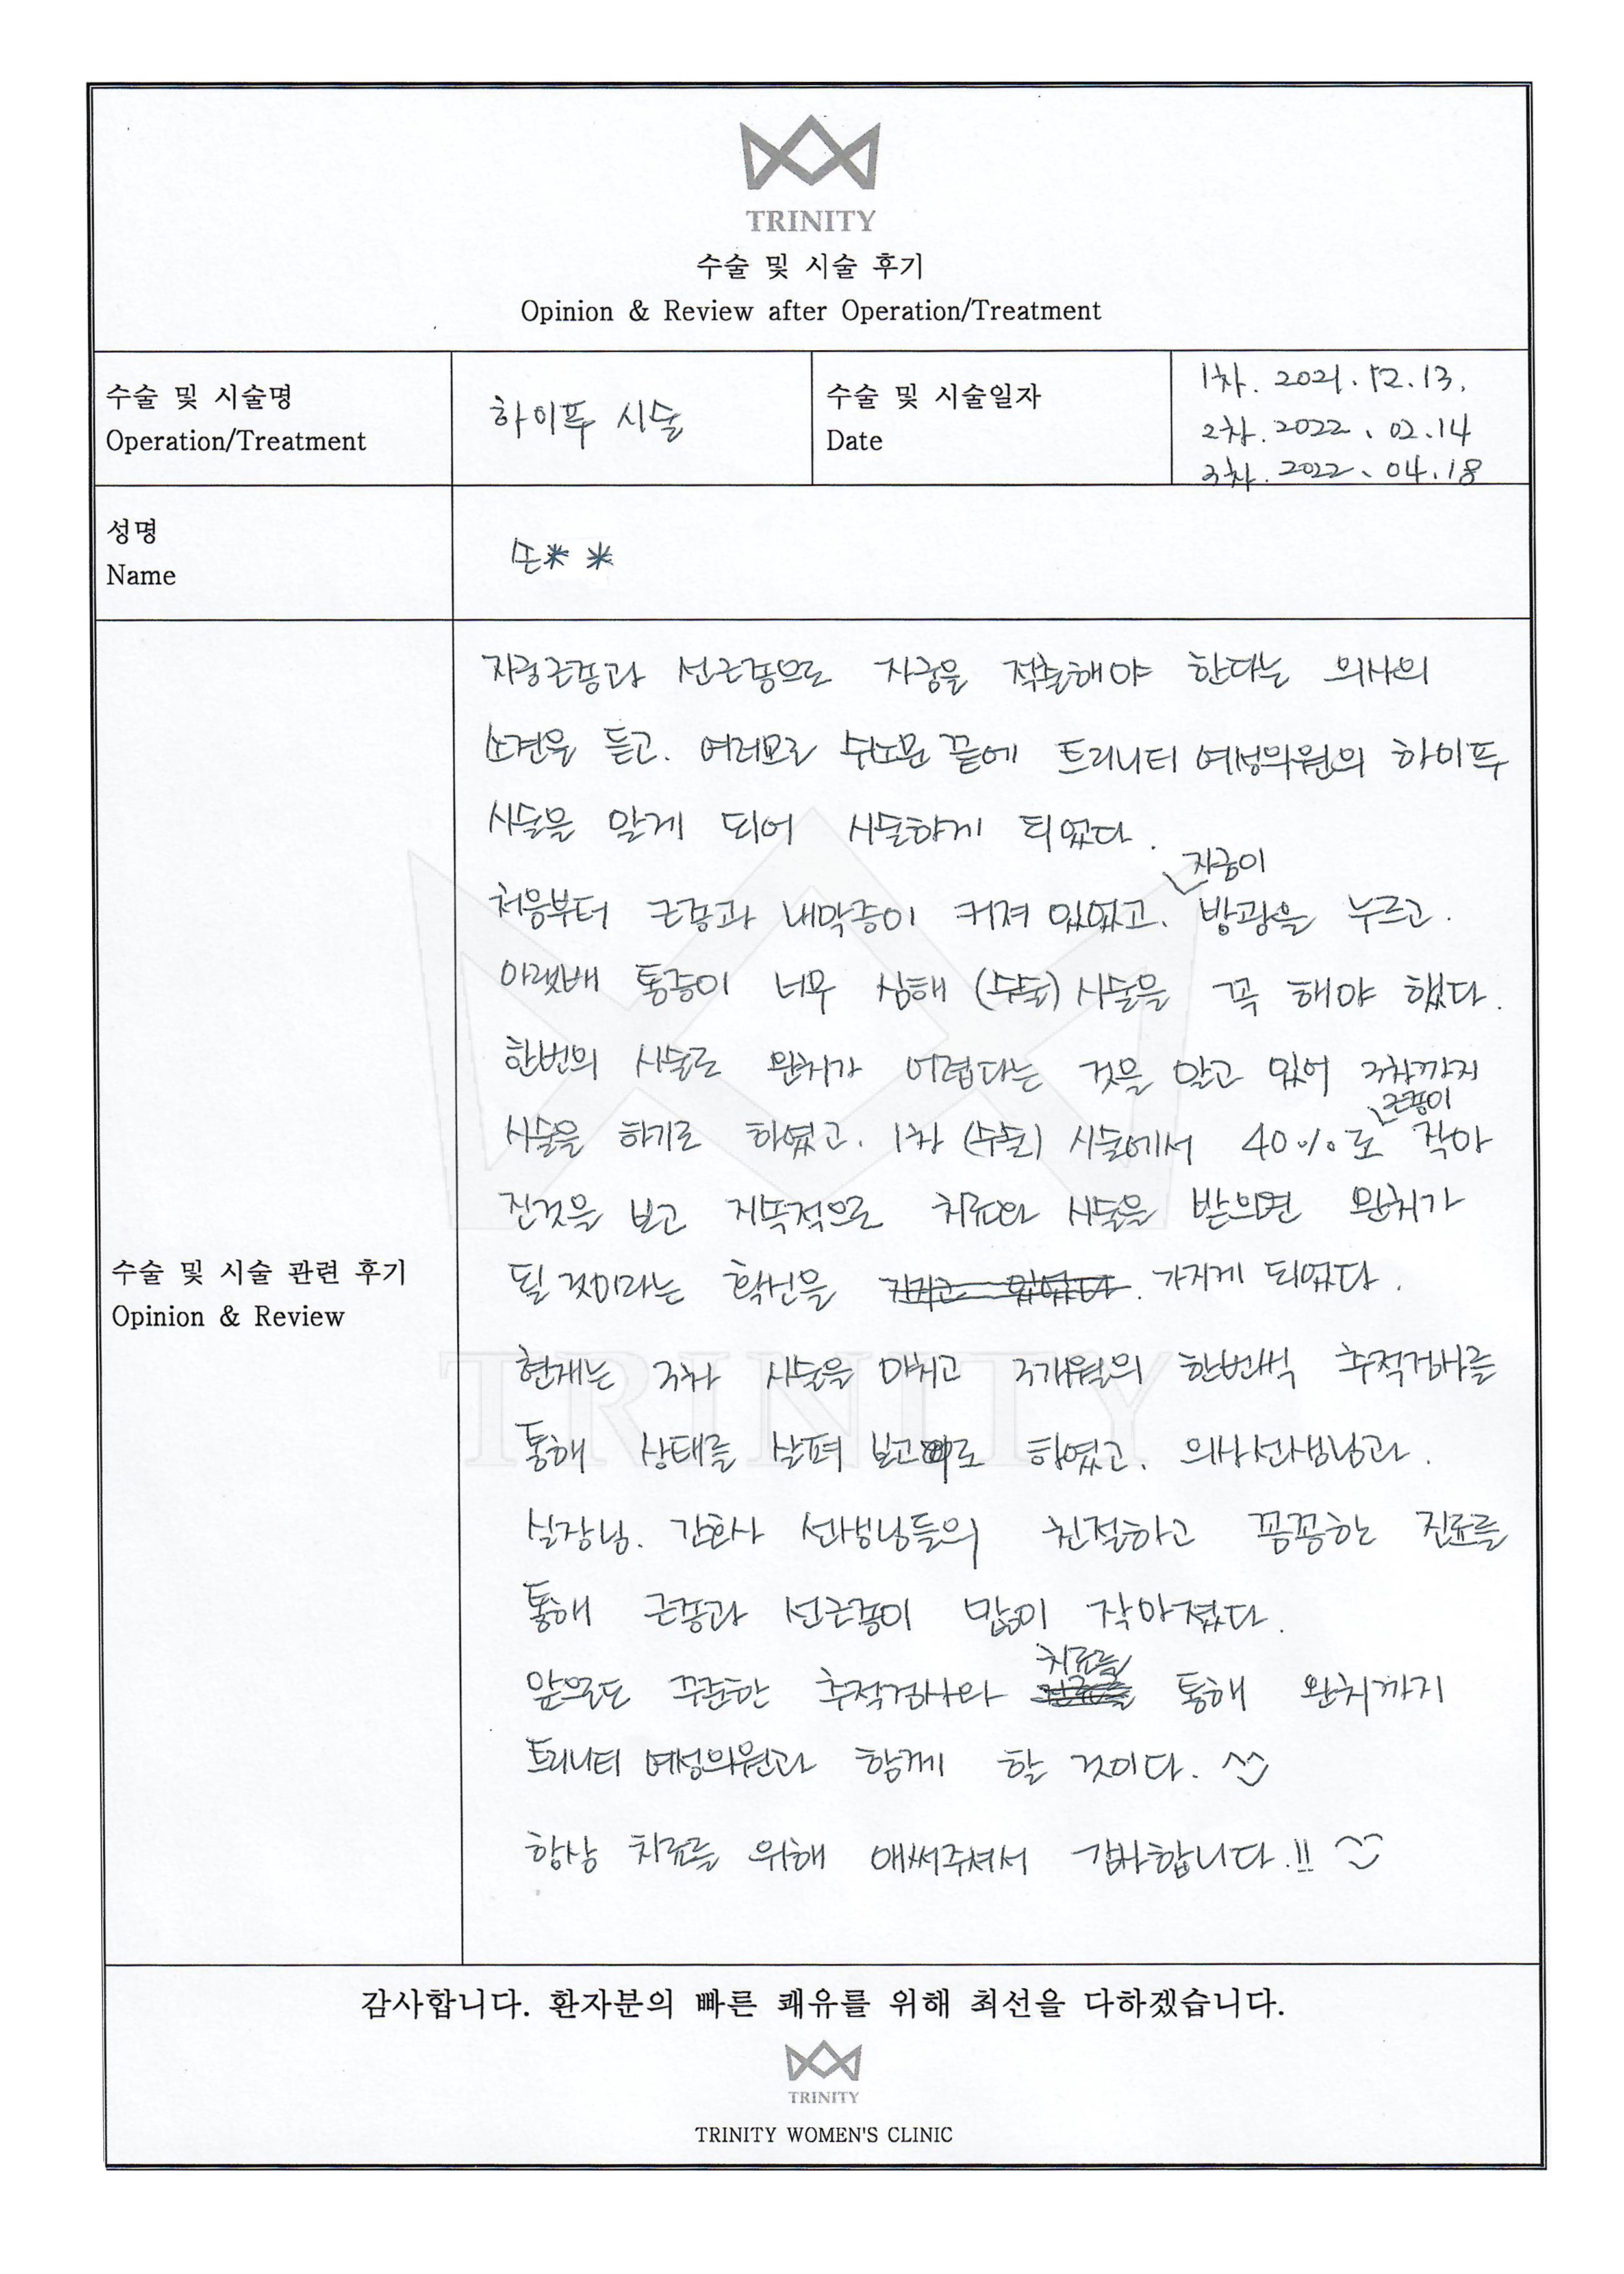 TRINITY
수술 및 시술 후기
Opinion & Review after Operation/Treatment
수술 및 시술명
Operation/Treatment
하이푸 시술
수술 및 시술일자
Date
1차. 2021. 12. 13.
2차. 2022. 02. 14
3차. 2022. 04. 18
성명
Name
손* *
자궁근종과 선근종으로 자궁을 적출해야 한다는 의사의
소견을 듣고. 여러모로 수소문 끝에 트리니티 여성의원의 하이푸
시술을 알게 되어 시술하게 되었다.
자궁이
처음부터 근종과 내막증이 커져 있었고. 방광을 누르고.
아랫배 통증이 너무 심해 (수술) 시술을 꼭 해야 했다.
한번의 시술로 완치가 어렵다는 것을 알고 있어 3차까지
근종이
시술을 하기로 하였고. 1차 (수술) 시술에서 40%로 작아
진것을 보고 지속적으로 치료와 시술을 받으면 완치가
될 것이라는 확신을 가지게 되었다.
현재는 3차 시술을 마치고 3개월의 한번씩 추적검사를
통해 상태를 살펴 보고 하였고. 의사선생님과.
실장님. 간호사 선생님들의 친절하고 꼼꼼한 진료를
통해 근종과 선근종이 많이 작아졌다.
치료를
앞으로도 꾸준한 추적검사와 통해 완치까지
트리니티 여성의원과 함께 할 것이다. ^^
항상 치료를 위해 애써주셔서 감사합니다.!! ^^
수술 및 시술 관련 후기
Opinion & Review
TRINITY
감사합니다. 환자분의 빠른 쾌유를 위해 최선을 다하겠습니다.
TRINITY
TRINITY WOMEN'S CLINIC